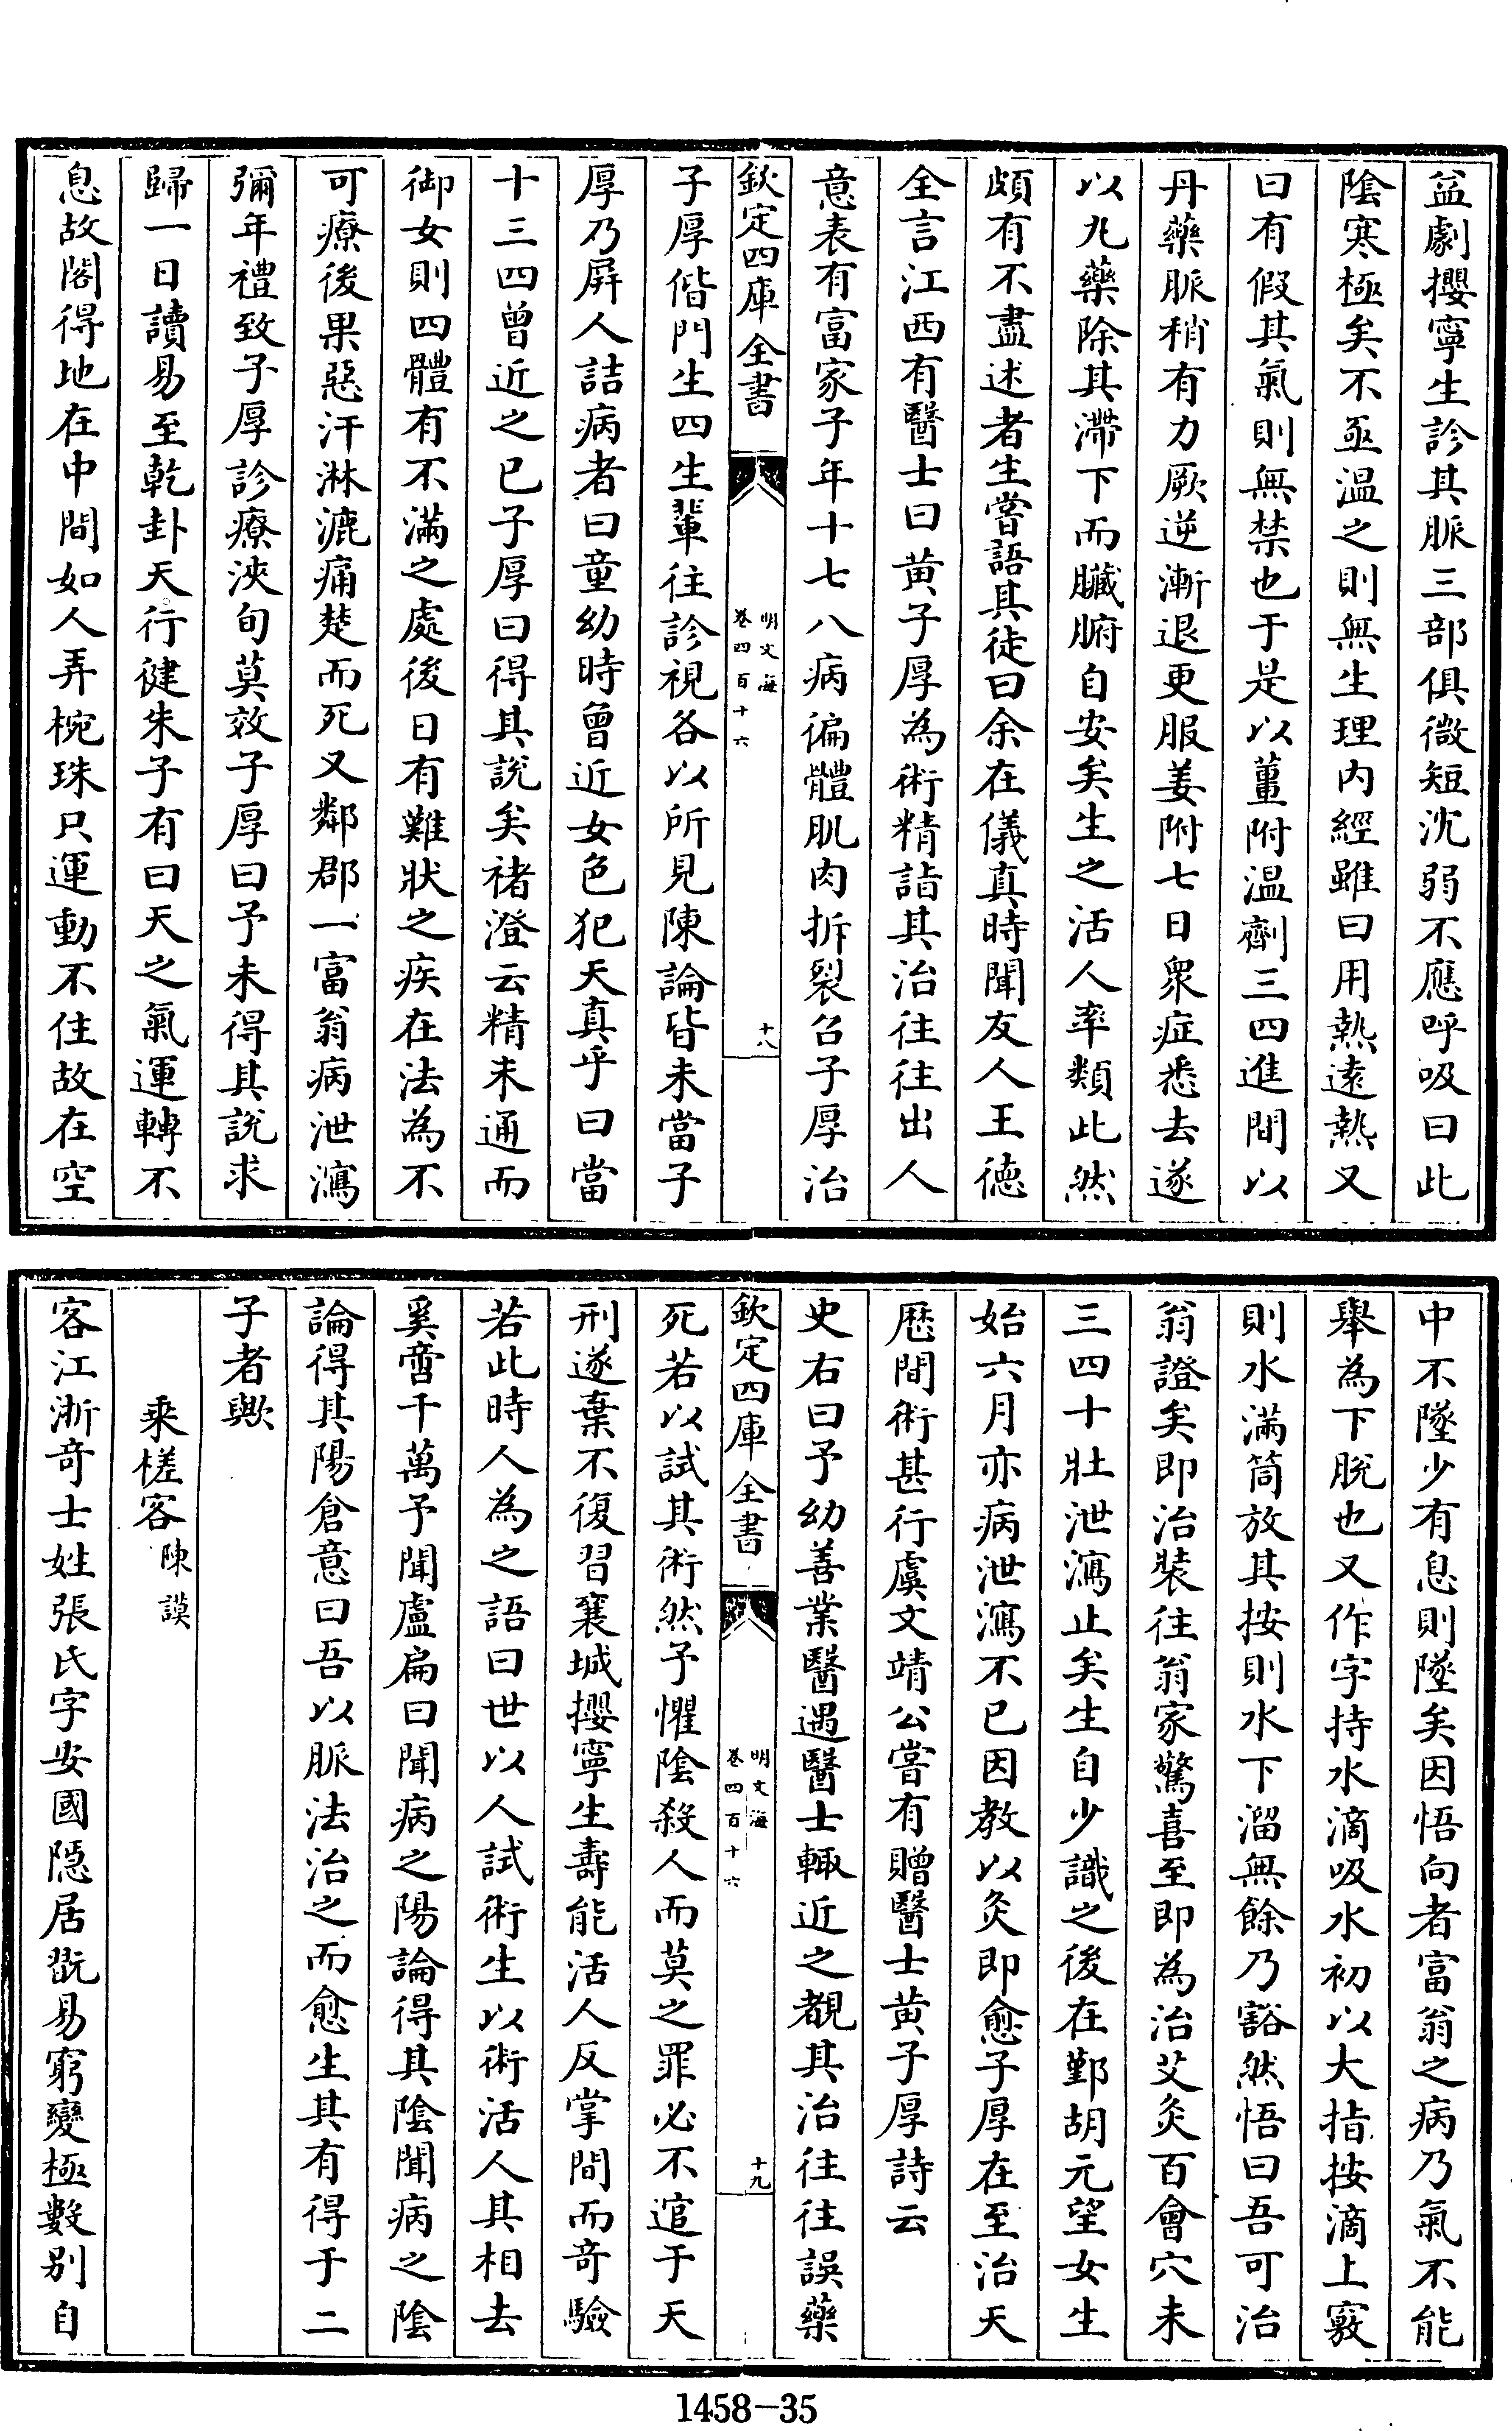 益劇攖寧生診其脈三部俱微短沈弱不應呼吸曰此
陰寒極矣不亟温之則無生理内經雖曰用熱逺熱又
曰有假其氣則無禁也于是以薑附温劑三四進間以
丹藥脈稍有力厥逆漸退更服姜附七日衆症悉去遂
以丸藥除其滯下而臟腑自安矣生之活人率類此然
頗有不盡述者生嘗語其徒曰余在儀真時聞友人王德
全言江西有醫士曰黄子厚為術精詣其治往往出人
意表有富家子年十七八病徧體肌肉拆裂召子厚治
欽定四庫全書
明文海
卷四百十六
十八
子厚偕門生四生輩往診視各以所見陳論皆未當子
厚乃屏人詰病者曰童幼時曾近女色犯天真乎曰當
十三四曾近之已子厚曰得其說矣褚澄云精未通而
御女則四體有不滿之處後日有難狀之疾在法為不
可療後果惡汗淋漉痛楚而死又鄰郡一富翁病泄瀉
彌年禮致子厚診療浹旬莫效子厚曰予未得其說求
歸一日讀易至乾卦天行健朱子有曰天之氣運轉不
息故閣得地在中間如人弄椀珠只運動不住故在空
中不墜少有息則墜矣因悟向者富翁之病乃氣不能
舉為下脱也又作字持水滴吸水初以大指按滴上竅
則水滿筒放其按則水下溜無餘乃豁然悟曰吾可治
翁證矣即治裝往翁家驚喜至即為治艾灸百會穴未
三四十壯泄瀉止矣生自少識之後在鄞胡元望女生
始六月亦病泄瀉不已因教以灸即愈子厚在至治天
厯間術甚行虞文靖公嘗有贈醫士黄子厚詩云
史右曰予幼善業醫遇醫士輒近之覩其治往往誤藥
欽定四庫全書
明文海
卷四百十六
十九
死若以試其術然予懼陰殺人而莫之罪必不逭于天
刑遂棄不復習襄城攖寧生壽能活人反掌間而奇驗
若此時人為之語曰世以人試術生以術活人其相去
奚啻千萬予聞盧扁曰聞病之陽論得其陰聞病之陰
論得其陽倉意曰吾以脈法治之而愈生其有得于二
子者歟
乘槎客陳謨
客江浙奇士姓張氏字安國隱居翫易窮變極數别自
1458—35